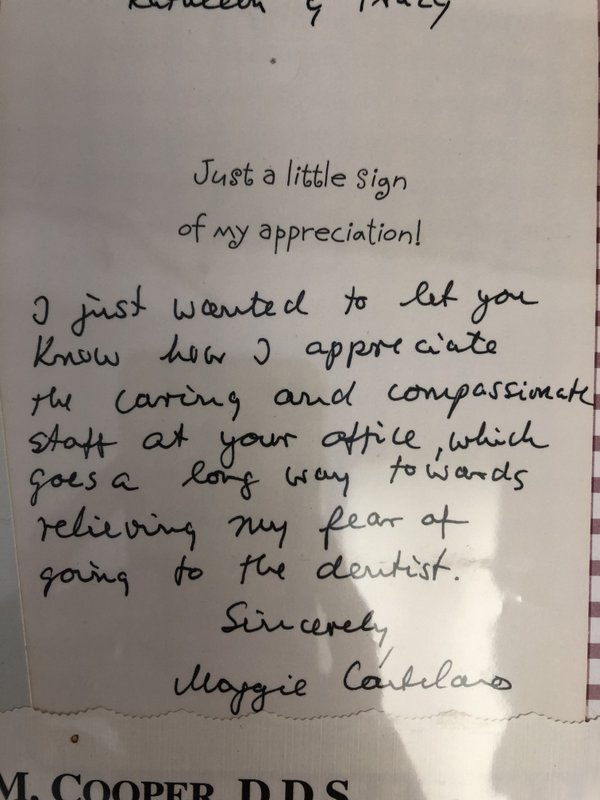 Kathleen & Tracy
Just a little sign
of my appreciation!
I just wanted to let you
know how I appreciate
the caring and compassionate
staff at your office, which
goes a long way towards
relieving my fear of
going to the dentist.
Sincerely,
Maggie
M. COOPER, D.D.S.